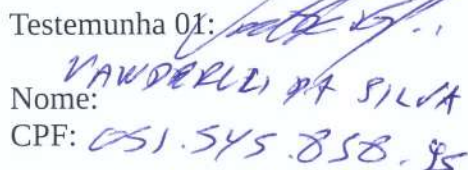 Testemunha 01:
VANDERLEI DA SILVA
Nome:
CPF: 051.545.858.95